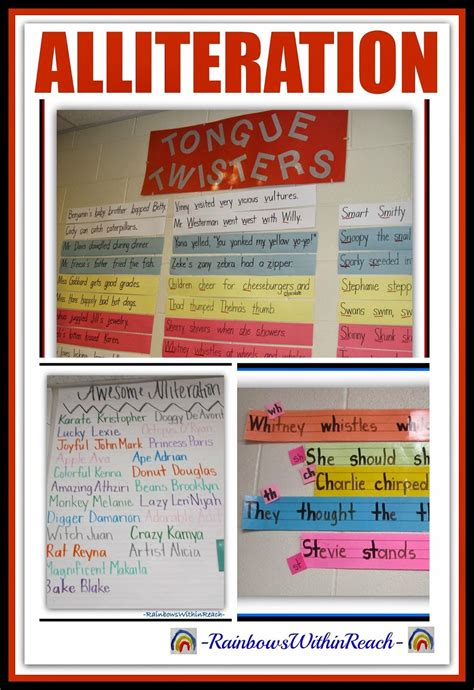 ALLITERATION
TONGUE
TWISTERS
Benjamin's baby brother bopped Betty.
Cody can catch caterpillars.
Mr. Davis dawdled during dinner.
fried five fish.
Miss Gabbard gets good grades.
Miss Hans happily had hot dogs.
Jill's jewelry.
kissed Karen.
Vinny visited very vicious vultures.
Mr. Westerman went west with Willy.
Yana yelled, "You yanked my yellow yo-yo!"
Zeke's zany zebra had a zipper.
Children cheer for cheeseburgers and
chocolate
Thad thumped Thelma's thumb.
Sherry shivers when she showers.
Whitney whistles at wheels and
Smart Smitty
Snoopy the snail
Sparky speeded
Stephanie stepp
Swans swim,
Skinny Skunk
Awesome Alliteration
Karate Kristopher Doggy De'Avont
Lucky Lexie Octopus O'Ryan
Joyful John Mark Princess Paris
Apple Ava Ape Adrian
Colorful Kenna Donut Douglas
Amazing Athziri Beans Brooklyn
Monkey Melanie Lazy LenNijah
Digger Damarion Adorable
Witch Juan Crazy Kamya
Rat Reyna Artist Alicia
Magnificent Makaila
Bake Blake
-RainbowsWithinReach-
wh
Whitney whistles while
sh
She should sh
ch
Charlie chirped
th
They thought the th
st
Stevie stands
-RainbowsWithinReach-